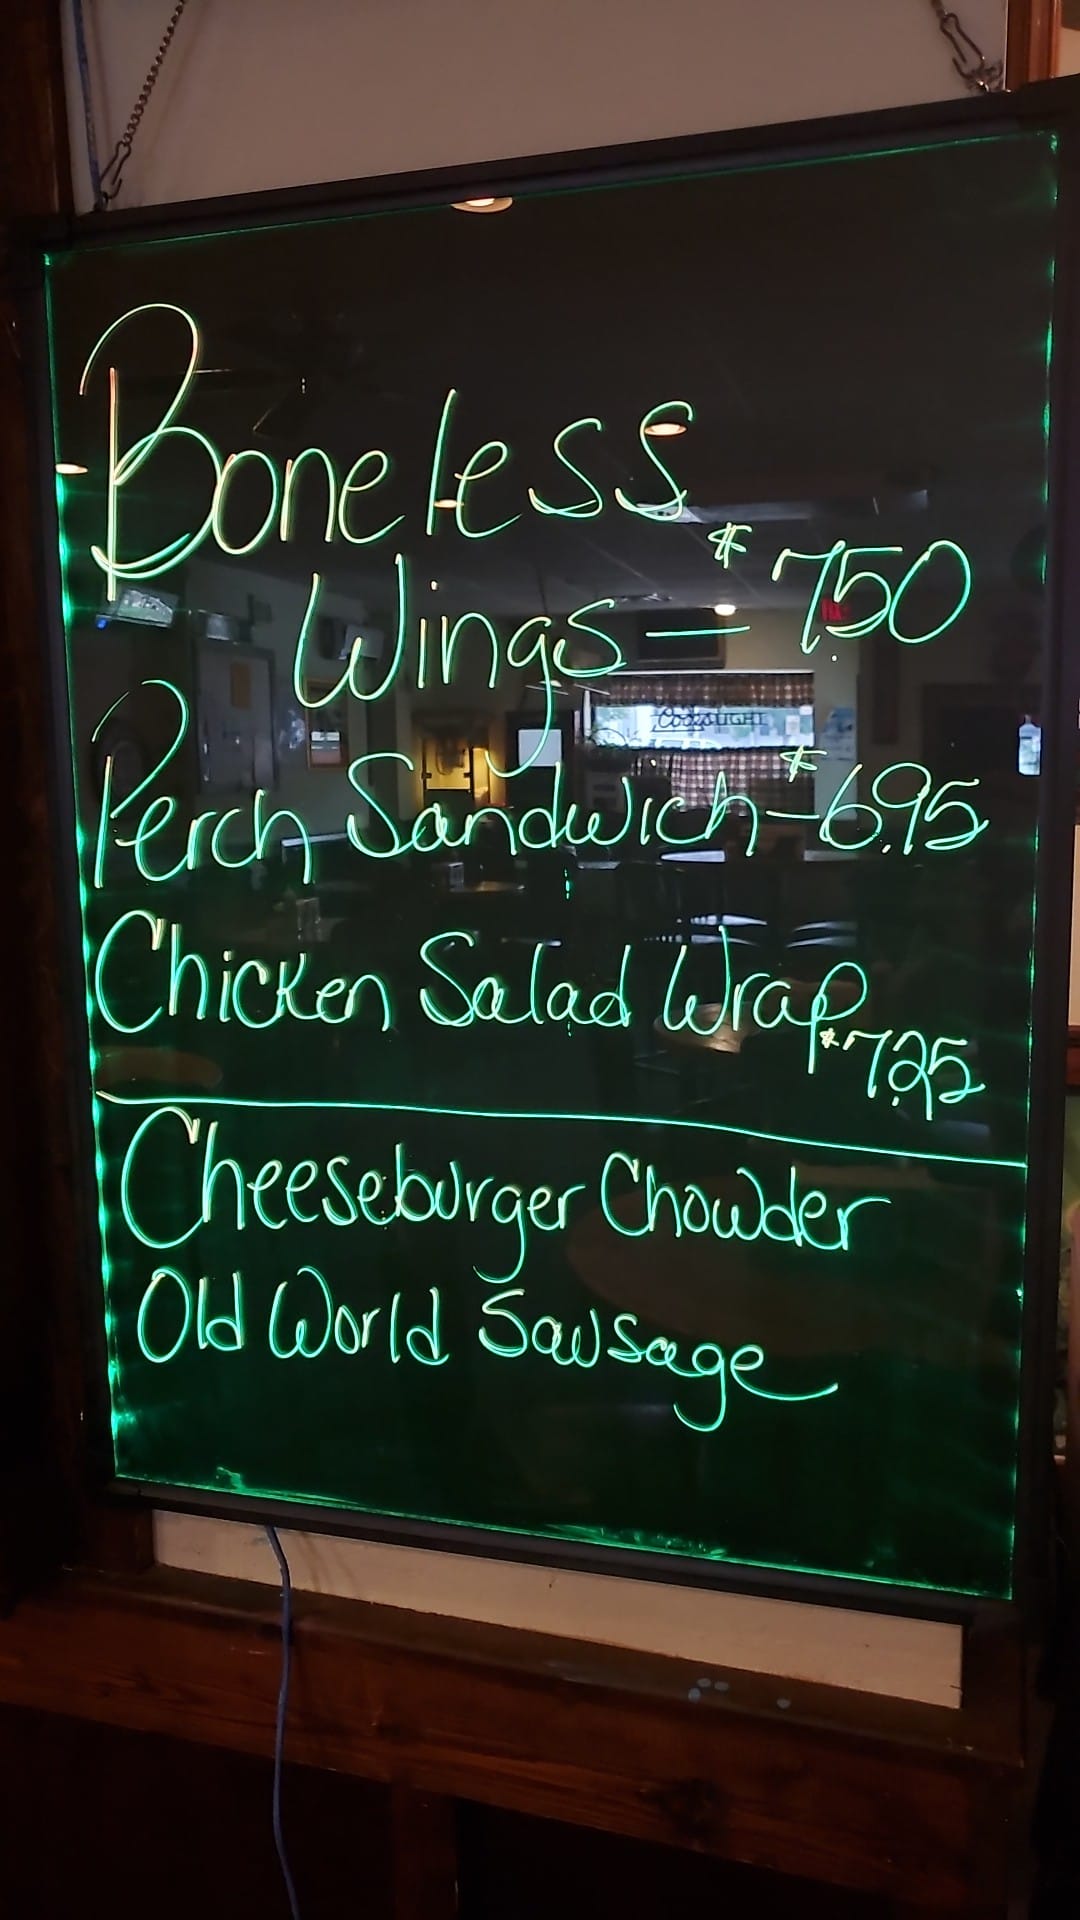 Boneless
Wings — $7.50
Perch Sandwich - $6.95
Chicken Salad Wrap
$7.25
Cheeseburger Chowder
Old World Sausage